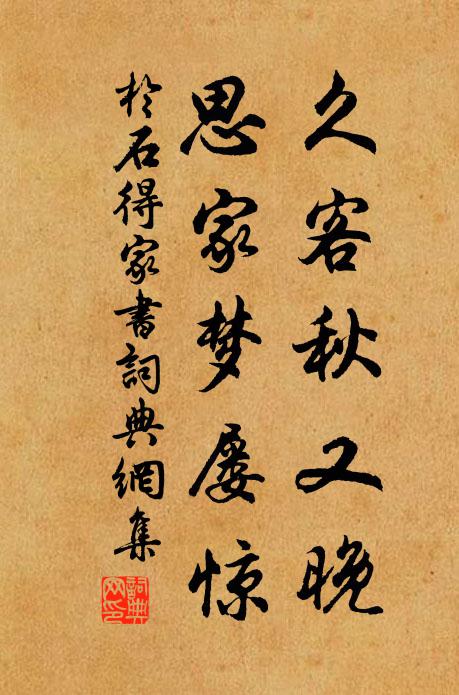 久客秋又晚
思家梦屡惊
於石得家書詞典網集
詞典
网印